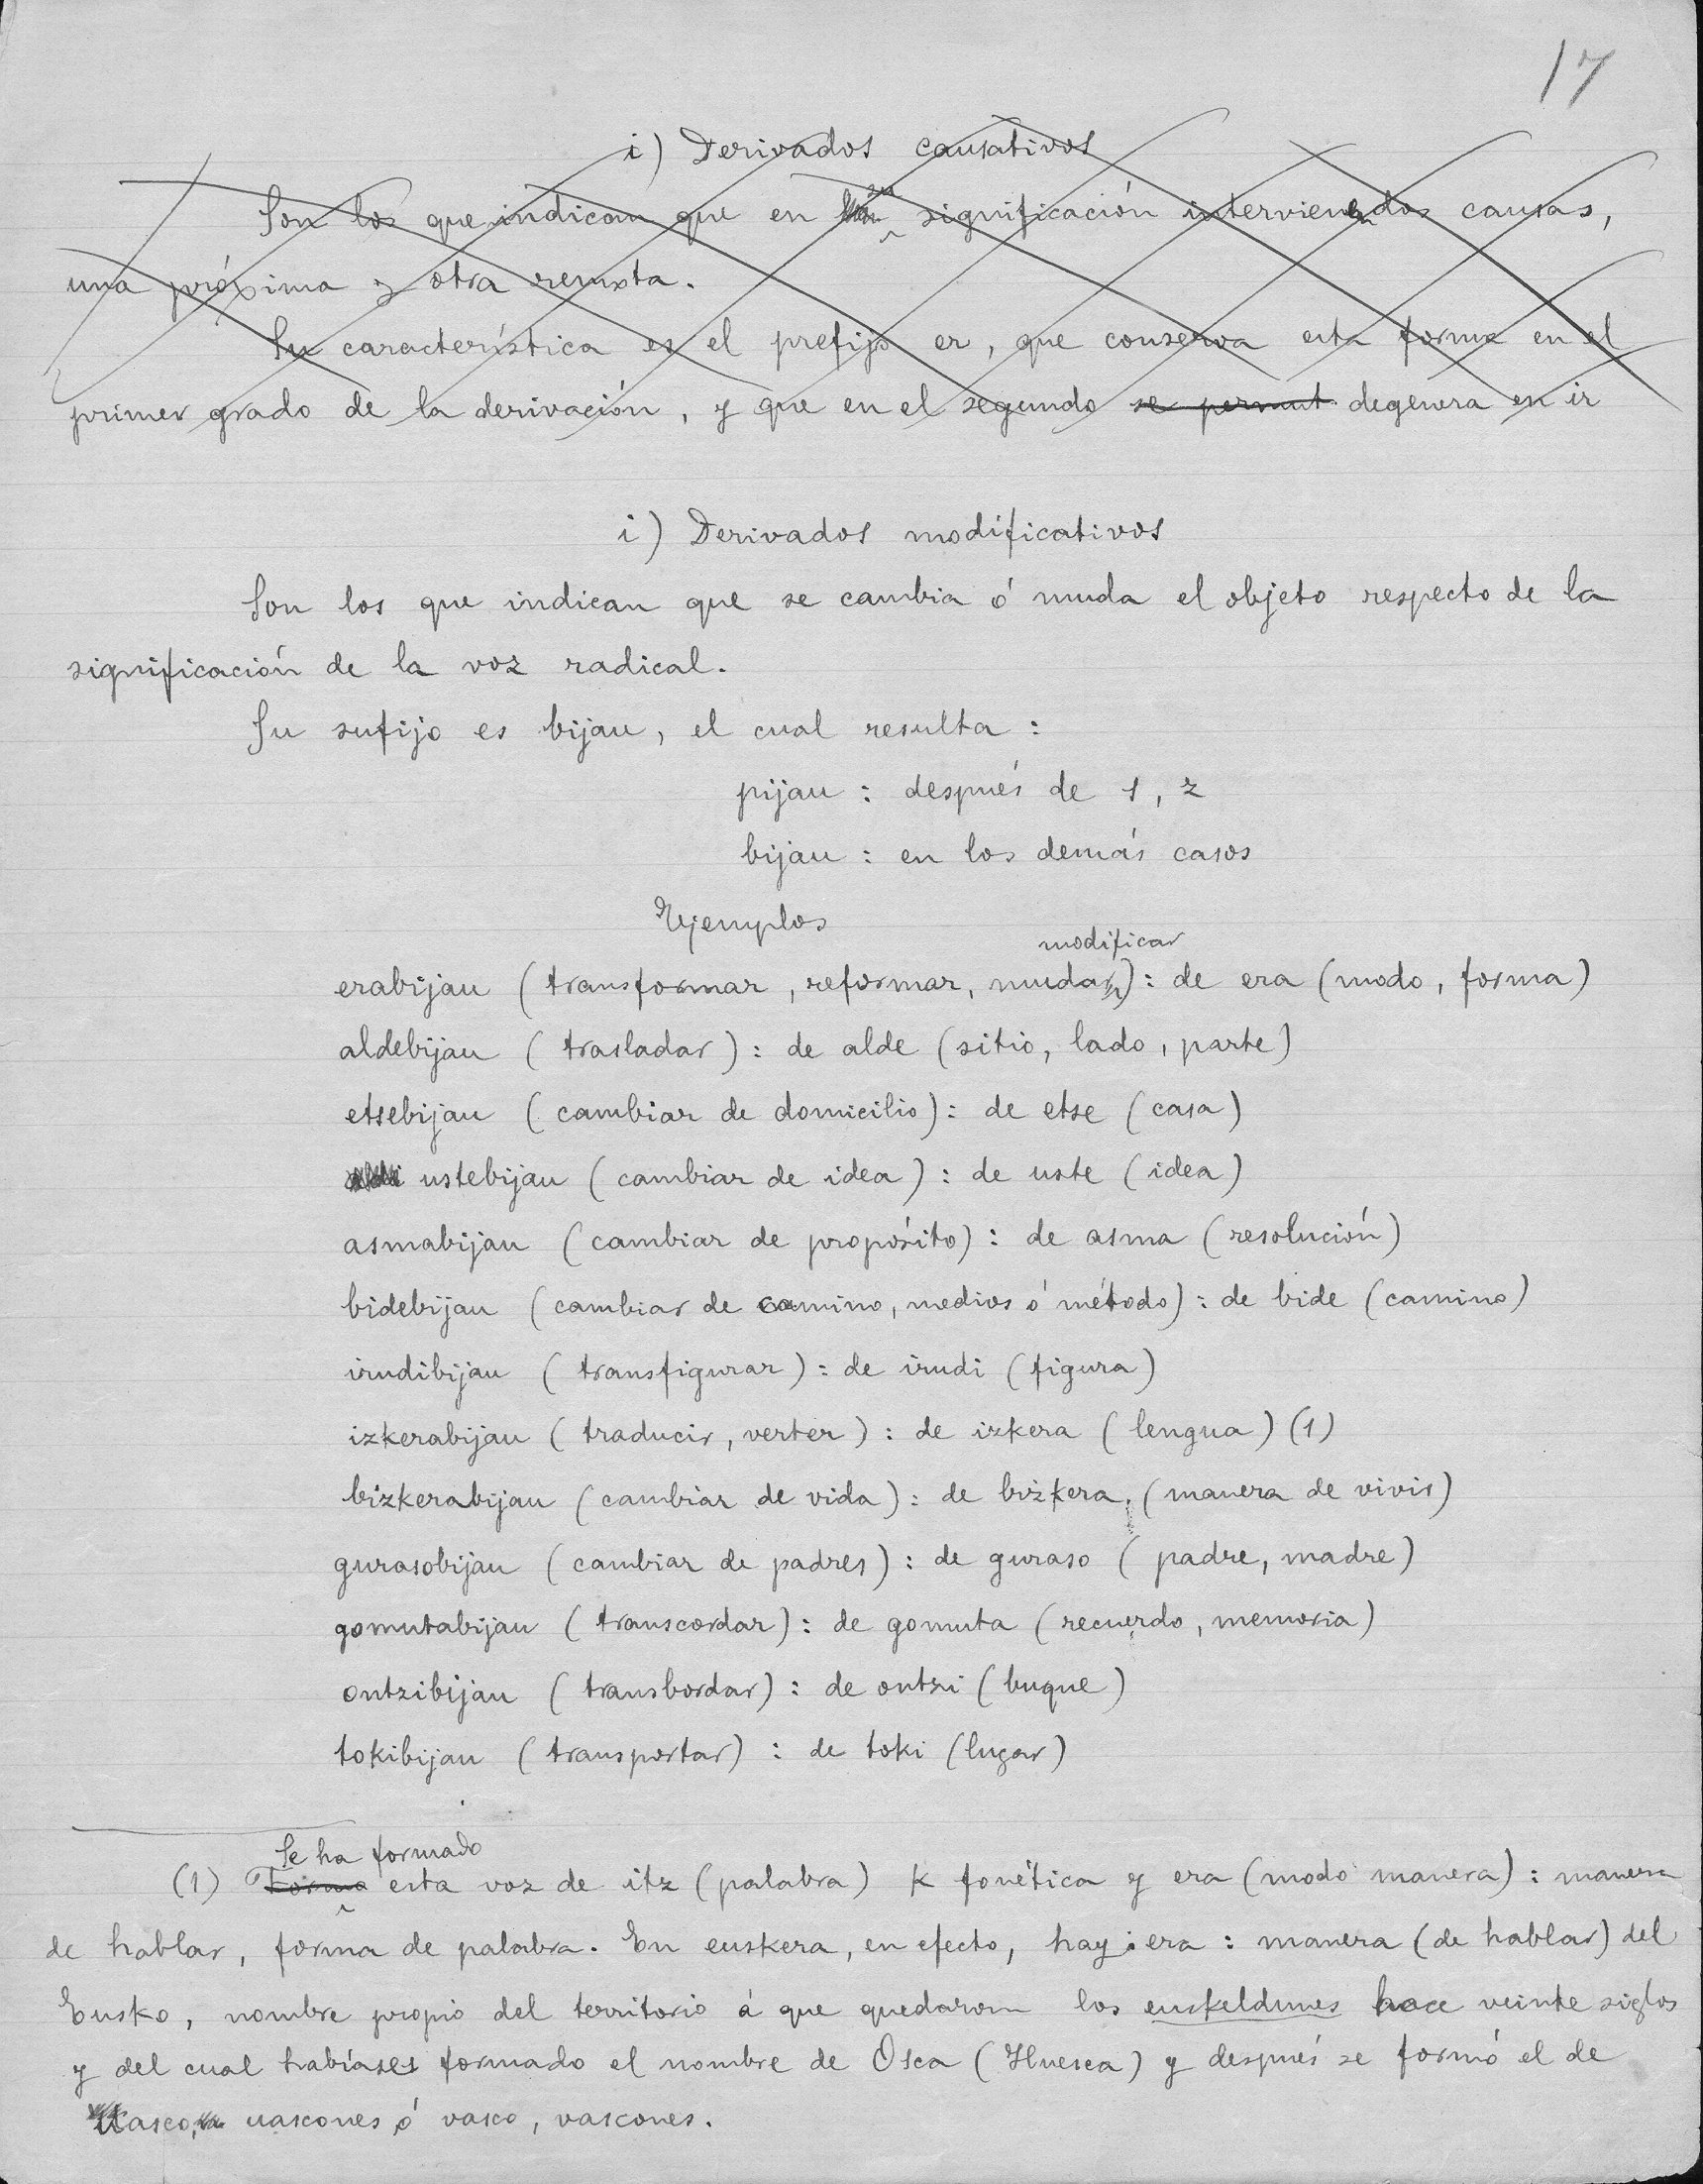 17
i) Derivados causativos
Son los que indican que en su significación intervienen dos causas,
una próxima y otra remota.
Su característica es el prefijo er, que conserva esta forma en el
primer grado de la derivación, y que en el segundo se permut degenera en ir
i) Derivados modificativos
Son los que indican que se cambia ó muda el objeto respecto de la
significación de la voz radical.
Su sufijo es bijau, el cual resulta :
pijau : después de s, z
bijau : en los demás casos
Ejemplos
modificar
erabijau (transformar, reformar, mudar) : de era (modo, forma)
aldebijau (trasladar) : de alde (sitio, lado, parte)
etsebijau (cambiar de domicilio) : de etse (casa)
ustebijau (cambiar de idea) : de uste (idea)
asmabijau (cambiar de propósito) : de asma (resolución)
bidebijau (cambiar de camino, medios ó método) : de bide (camino)
irudibijau (transfigurar) : de irudi (figura)
izkerabijau (traducir, verter) : de izkera (lengua) (1)
bizkerabijau (cambiar de vida) : de bizkera, (manera de vivir)
gurasobijau (cambiar de padres) : de guraso (padre, madre)
gomutabijau (transcordar) : de gomuta (recuerdo, memoria)
ontzibijau (transbordar) : de ontzi (buque)
tokibijau (transportar) : de toki (lugar)
Se ha formado
(1) Forma esta voz de itz (palabra) k fonética y era (modo manera) : manera
de hablar, forma de palabra. En euskera, en efecto, hay era : manera (de hablar) del
Eusko, nombre propio del territorio á que quedarom los euskeldunes hace veinte siglos
y del cual habíases formado el nombre de Osca (Huesca) y después se formó el de
Uasco, uascones ó vasco, vascones.